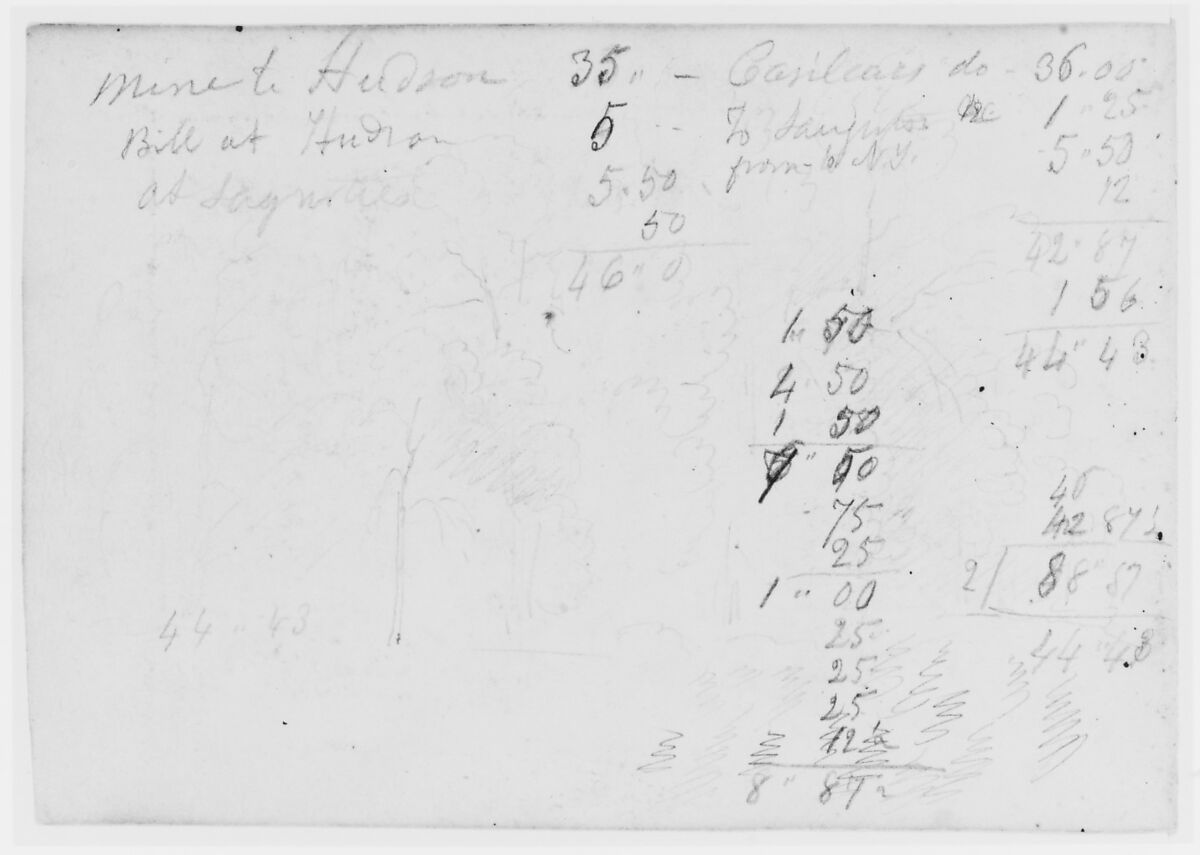 Mine to Hudson 35 " —
Bill at Hudson 5
at Saguties 5 " 50
50
46 " 0
Casilears do - 36.00
To Saugrties &c 1 " 25
from to N.Y. 5 " 50
12
42 " 87
1 56
44 " 43
1 " 50
4 " 50
1 50
" 50
75
25
1 " 00
25
25
25
12½
8 " 87
42 87½
2 / 88 " 87
44 " 43
44 " 43